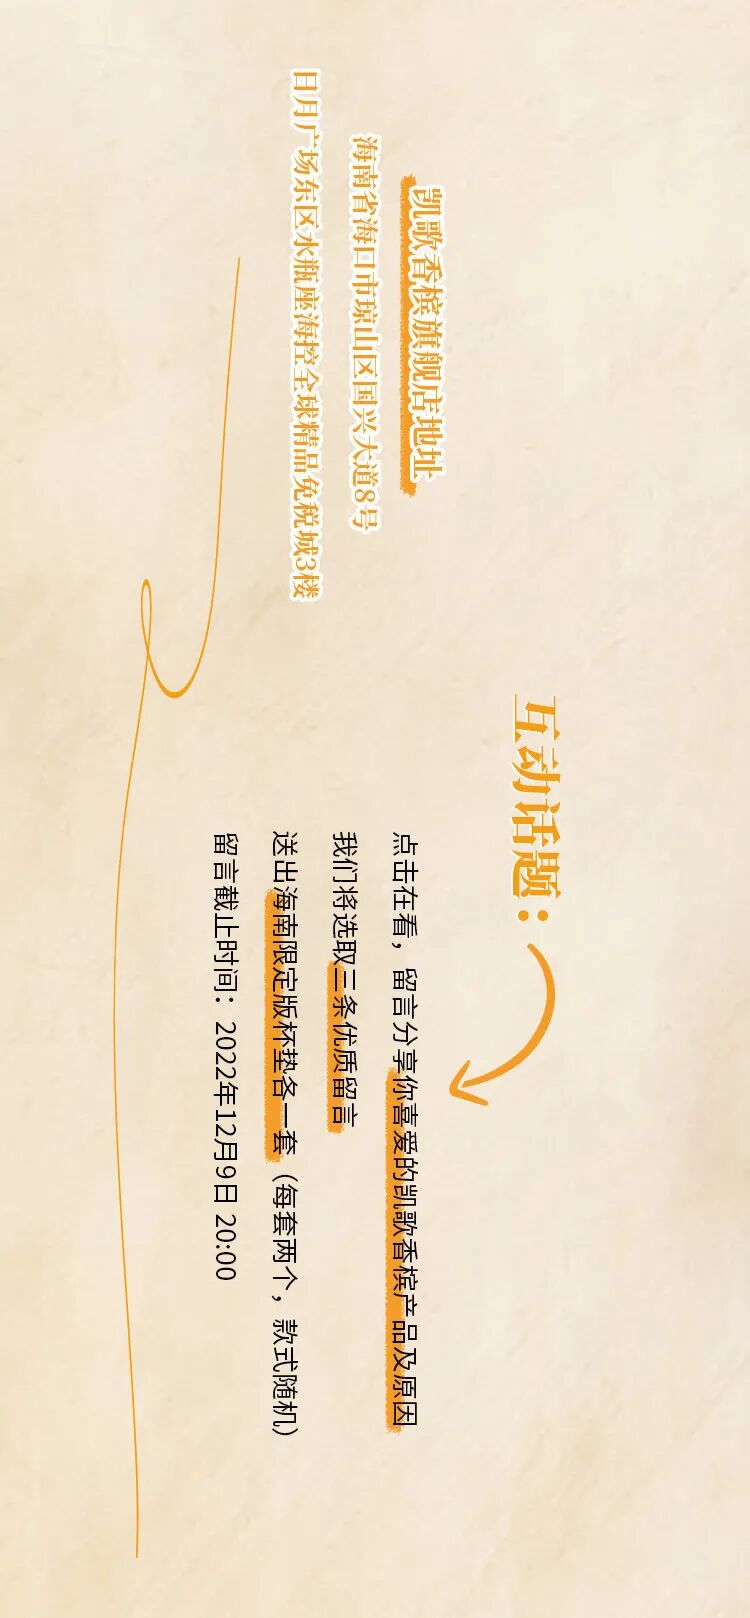 凯歌香槟旗舰店地址
海南省海口市琼山区国兴大道8号
日月广场东区水瓶座海控全球精品免税城3楼
互动话题：
点击在看，留言分享你喜爱的凯歌香槟产品及原因
我们将选取三条优质留言
送出海南限定版杯垫各一套（每套两个，款式随机）
留言截止时间：2022年12月9日 20:00